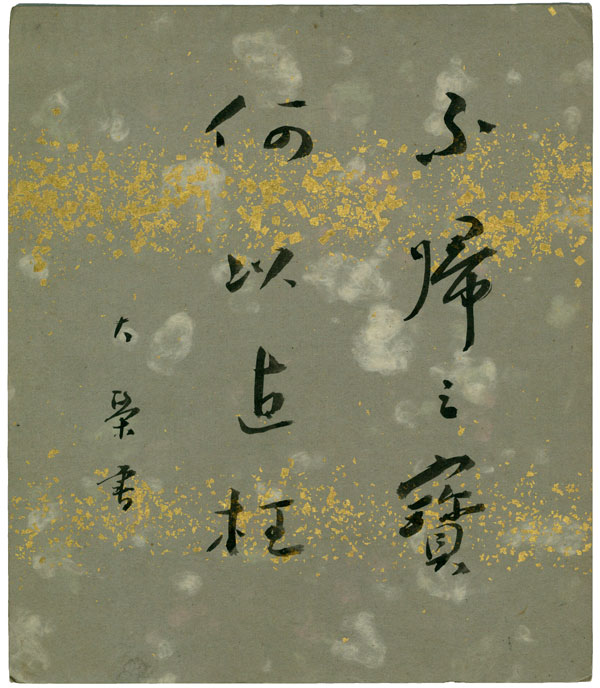 不帰三寶
何以直枉
大榮書